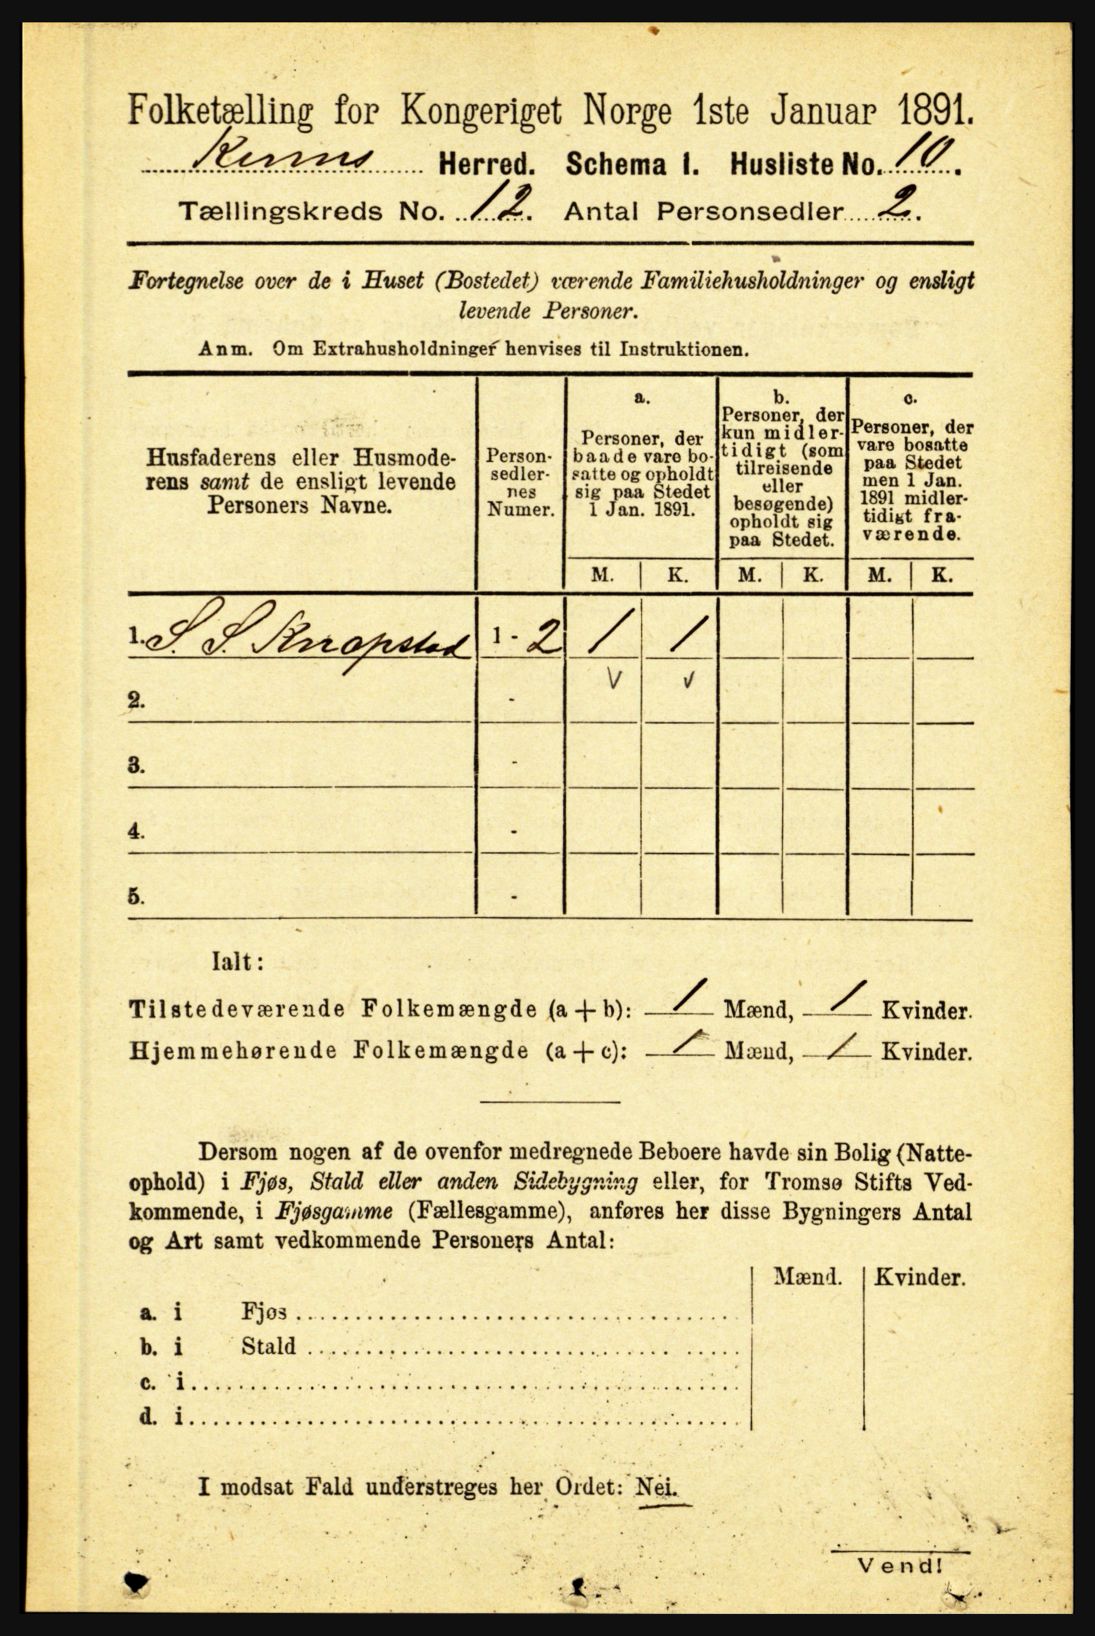 Folketælling for Kongeriget Norge 1ste Januar 1891.
Kinns Herred. Schema 1. Husliste No. 10.
Tællingskreds No. 12. Antal Personsedler 2.
Fortegnelse over de i Huset (Bostedet) værende Familiehusholdninger og ensligt
levende Personer.
Anm. Om Extrahusholdninger henvises til Instruktionen.
Husfaderens eller Husmode-
rens samt de ensligt levende
Personers Navne.
Person-
sedler-
nes
Numer.
a.
Personer, der
baade vare bo-
satte og opholdt
sig paa Stedet
1 Jan. 1891.
b.
Personer, der
kun midler-
tidigt (som
tilreisende
eller
besøgende)
opholdt sig
paa Stedet.
c.
Personer, der
vare bosatte
paa Stedet
men 1 Jan.
1891 midler-
tidigt fra-
værende.
M. K. M. K. M. K.
1. S. S. Knapstad 1 - 2 1 1
2. - v v
3. -
4. -
5. -
Ialt:
Tilstedeværende Folkemængde (a + b): 1 Mænd, 1 Kvinder.
Hjemmehørende Folkemængde (a + c): 1 Mænd, 1 Kvinder.
Dersom nogen af de ovenfor medregnede Beboere havde sin Bolig (Natte-
ophold) i Fjøs, Stald eller anden Sidebygning eller, for Tromsø Stifts Ved-
kommende, i Fjøsgamme (Fællesgamme), anføres her disse Bygningers Antal
og Art samt vedkommende Personers Antal:
Mænd. Kvinder.
a. i Fjøs
b. i Stald
c. i
d. i
I modsat Fald understreges her Ordet: Nei.
Vend!